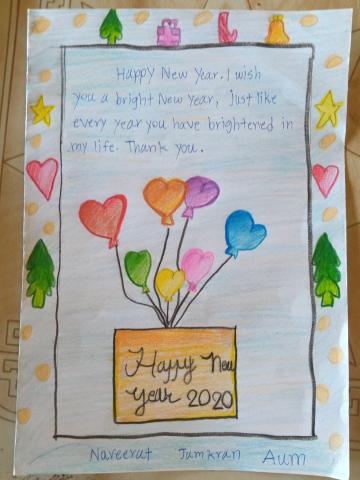 Happy New Year. I wish
you a bright New Year, just like
every year you have brightened in
my life. Thank you.
Happy New
Year 2020
Naveerat Jamkran Aum